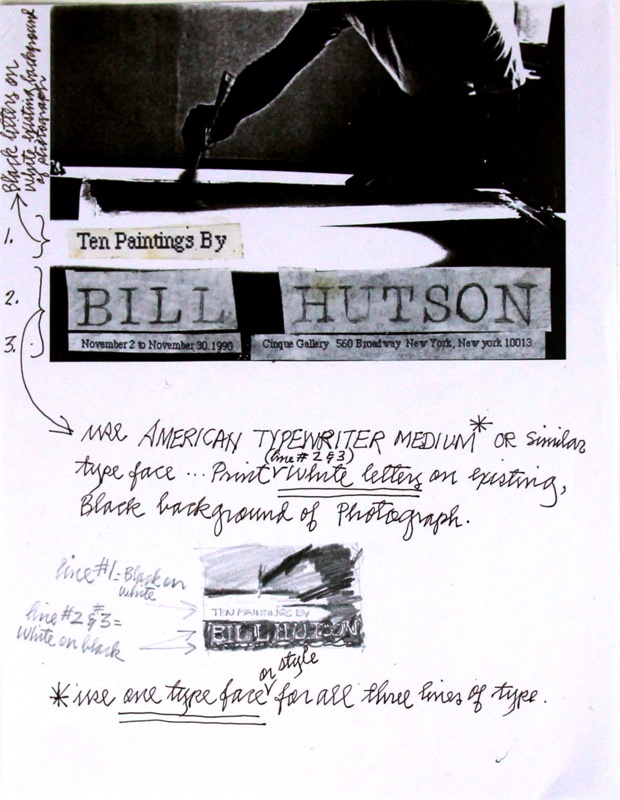 Black letters on
white existing background
of photograph
1.
Ten Paintings By
2.
BILL HUTSON
3.
November 2 to November 30, 1990 Cinque Gallery 560 Broadway New York, New york 10013
use AMERICAN TYPEWRITER MEDIUM* OR similar
(line # 2 & 3)
type face ... Print white letters on existing,
Black background of Photograph.
line #1 = Black on
white
TEN PAINTINGS BY
line #2 & #3 =
White on black
BILL HUTSON
or style
* use one type face for all three lines of type.